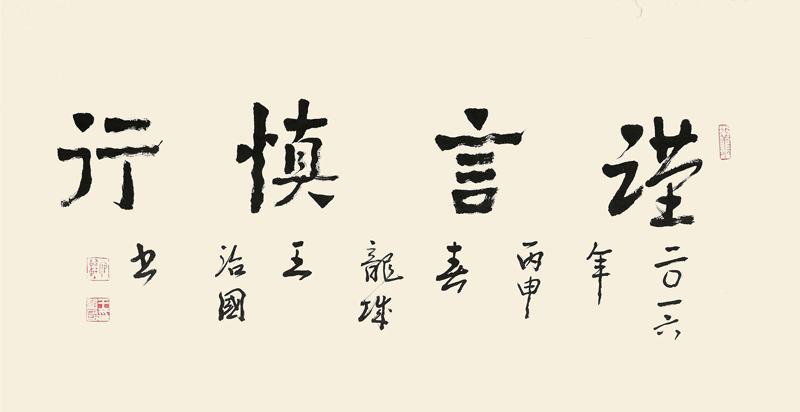 谨言慎行
二〇一六年丙申春龍城王治國书